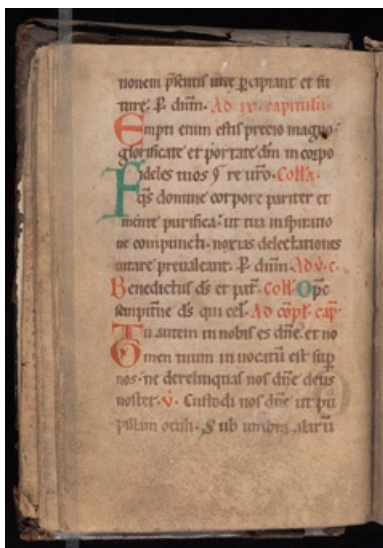 nonem p̄sentis uite ꝑcipiant et fu
ture. P̄ dn̄m. Ad ix. capitulū.
Empti enim estis precio magno.
glorificate et portate dn̄m in corpo
Fideles tuos ꝯ re ur̄o. Coll̄a.
q̄s domine corpore pariter et
mente purifica. ut tua inspiratio
ne compuncti. noxias delectationes
uitare preualeant. P̄ dn̄m. Ad v̄. c.
Benedictus ds̄ et pat̄. coll̄. Om̄ps
sempit̄ne ds̄ qui
Ad cōpl̄. cap̄.
Tu autem in nobis es dn̄e. et no
men tuum inuocatū est sup
nos. ne derelinquas nos dn̄e deus
noster. v̄. Custodi nos dn̄e ut pu
pillam oculi. Sub umbra alarū